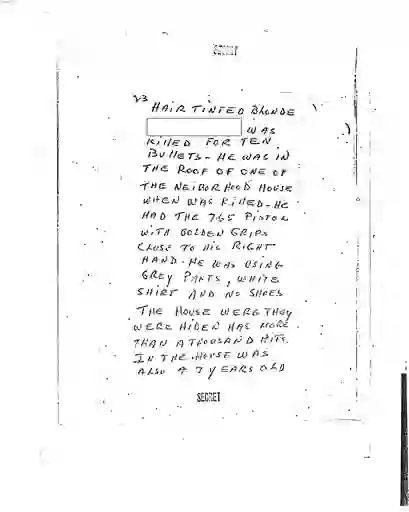 SECRET
23
HAIR TINTED BLONDE
WAS
KILLED FOR TEN
BULLETS - HE WAS IN
THE ROOF OF ONE OF
THE NEIBORHOOD HOUSE
WHEN WAS KILLED - HE
HAD THE 7.65 PISTOL
WITH GOLDEN GRIPS
CLOSE TO HIS RIGHT
HAND. HE WAS USING
GREY PANTS, WHITE
SHIRT AND NO SHOES
THE HOUSE WERE THEY
WERE HIDEN HAS MORE
THAN A THOUSAND HITS.
IN THE HOUSE WAS
ALSO A 7 YEARS OLD
SECRET